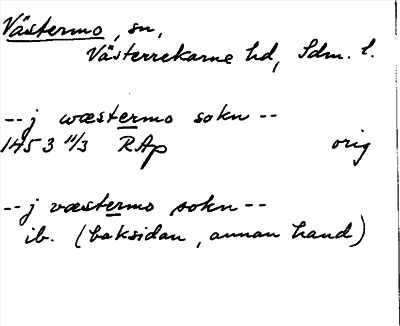 Västermo, sn,
Västerrekarne hd, Sdm. l.
--j wæstermo sokn--
1453 11/3 RAp orig
--j væstermo sokn--
ib. (baksidan, annan hand)